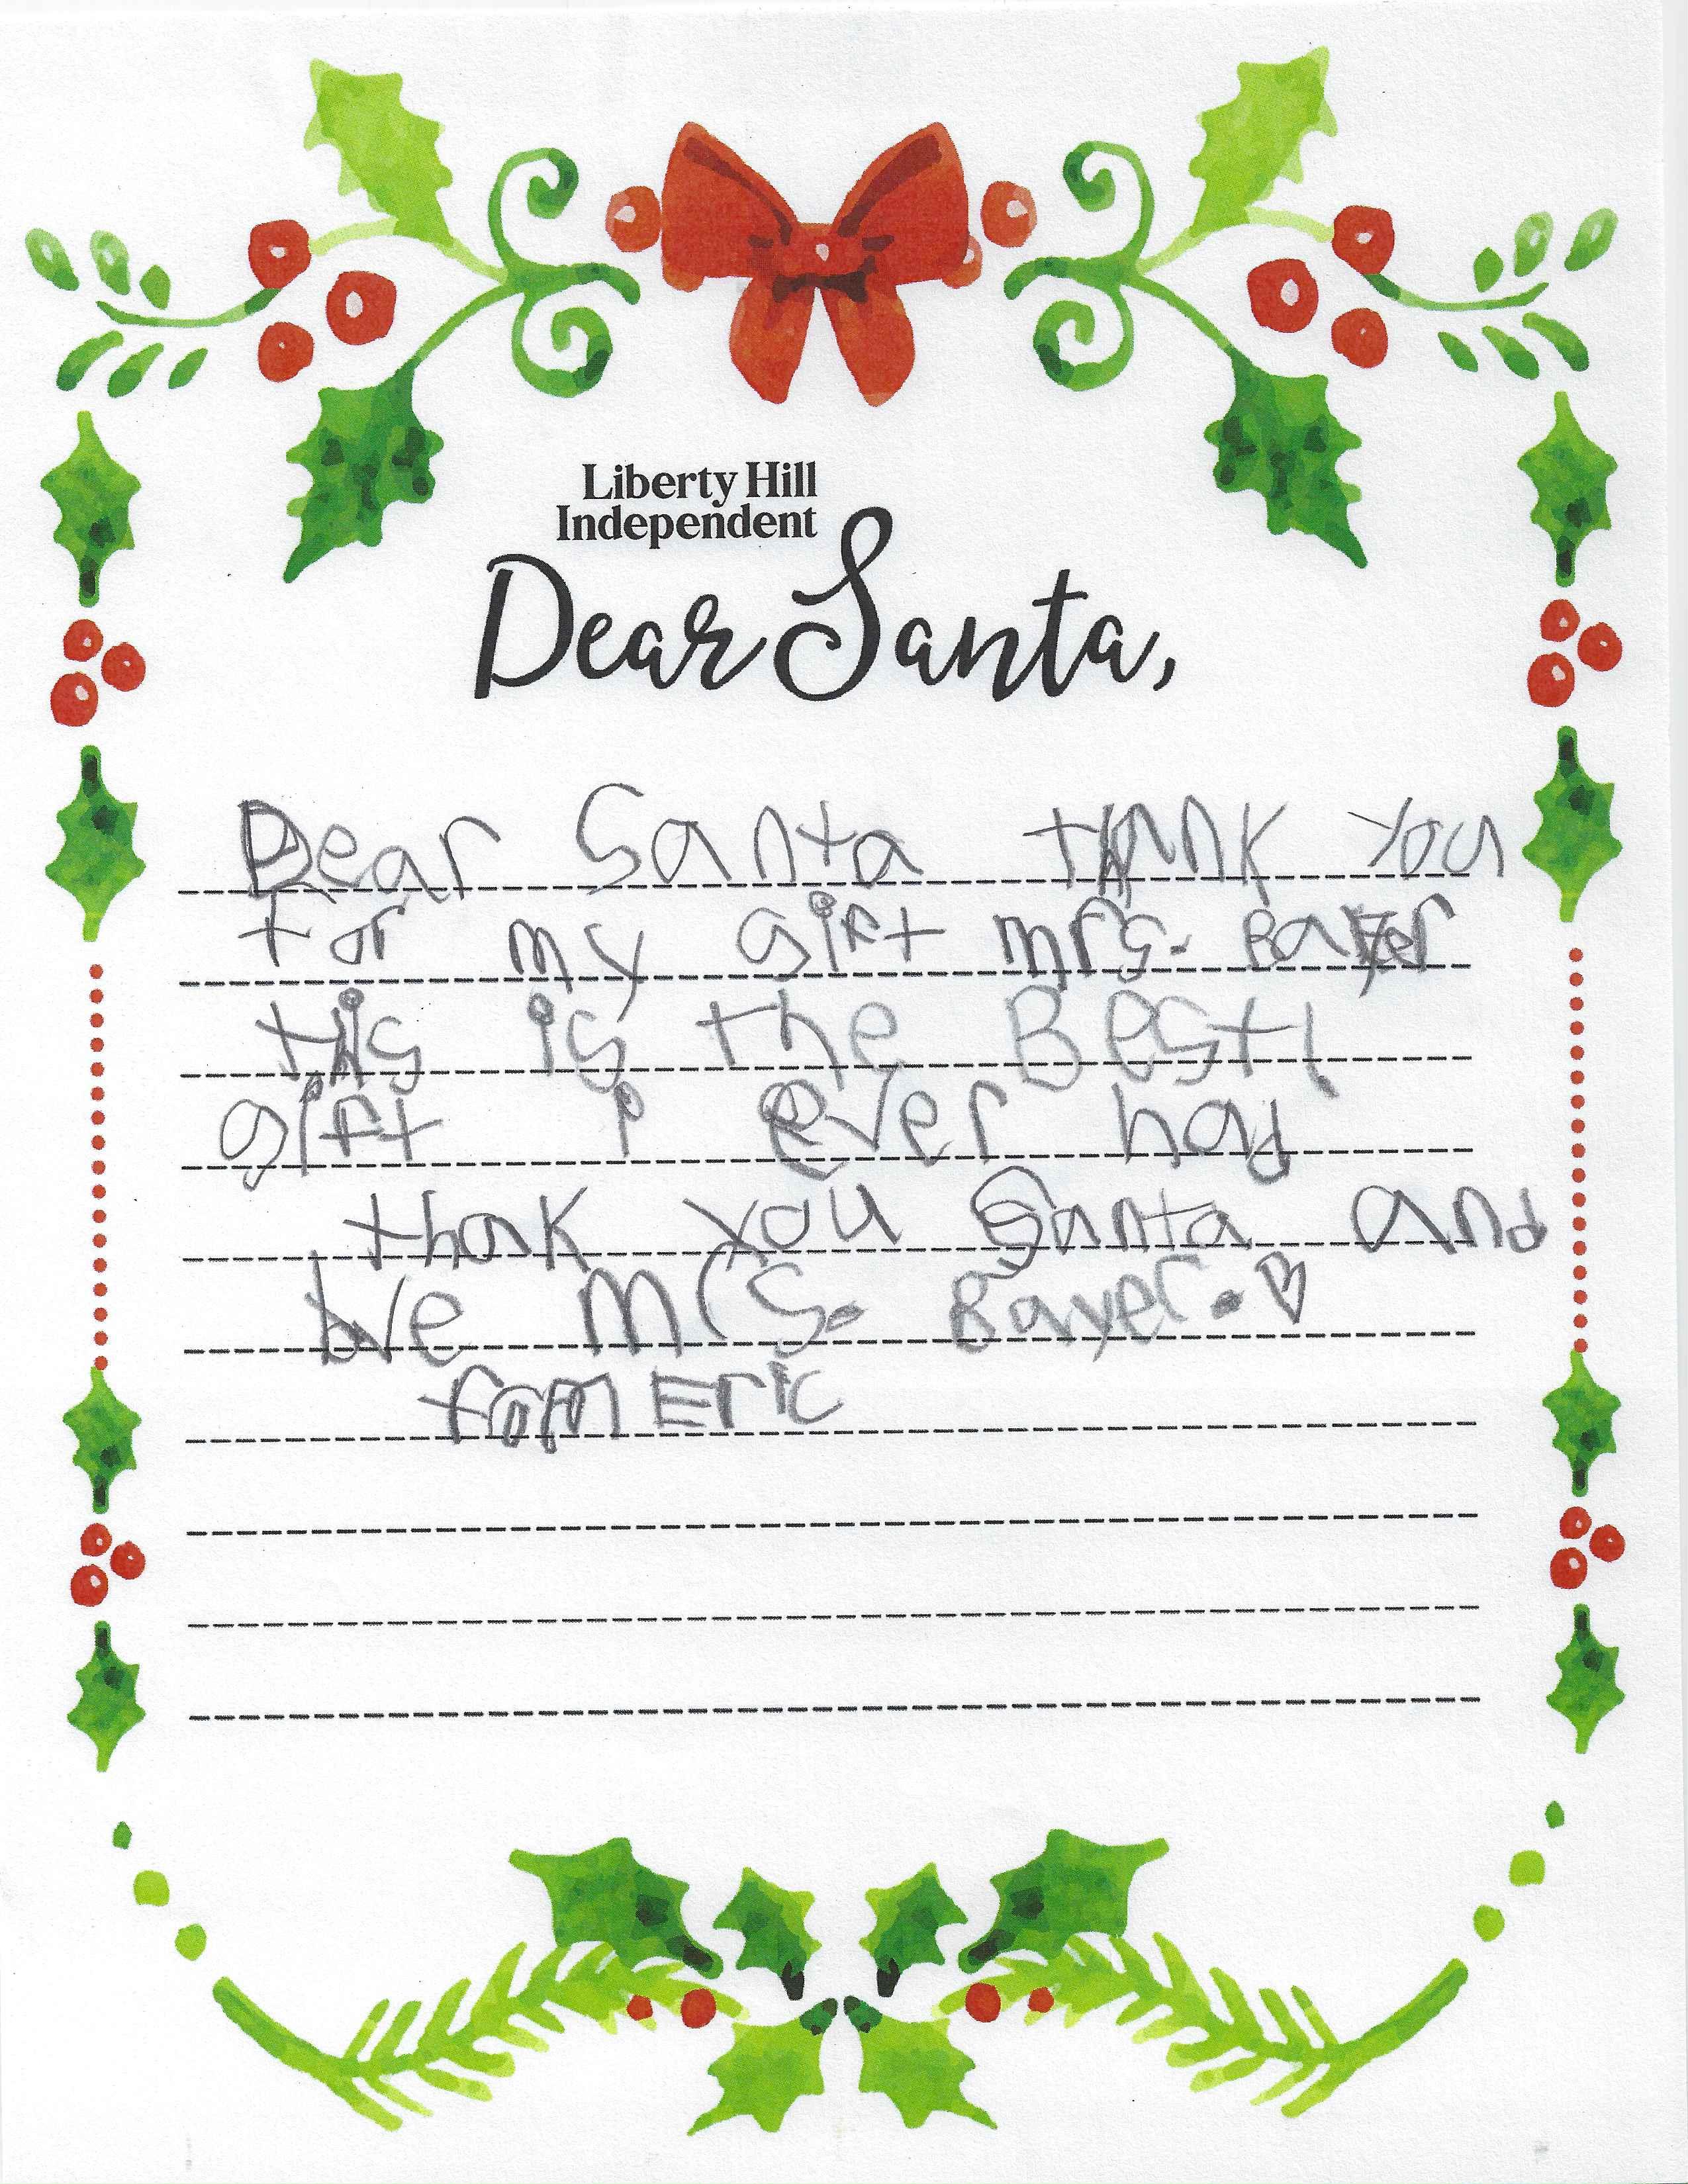 Liberty Hill
Independent
Dear Santa,
Dear Santa thank you
for my gift mrs. Bayer
this is the Best!
gift i ever had
thank you Santa and
Mrs. Bayer.
from Eric